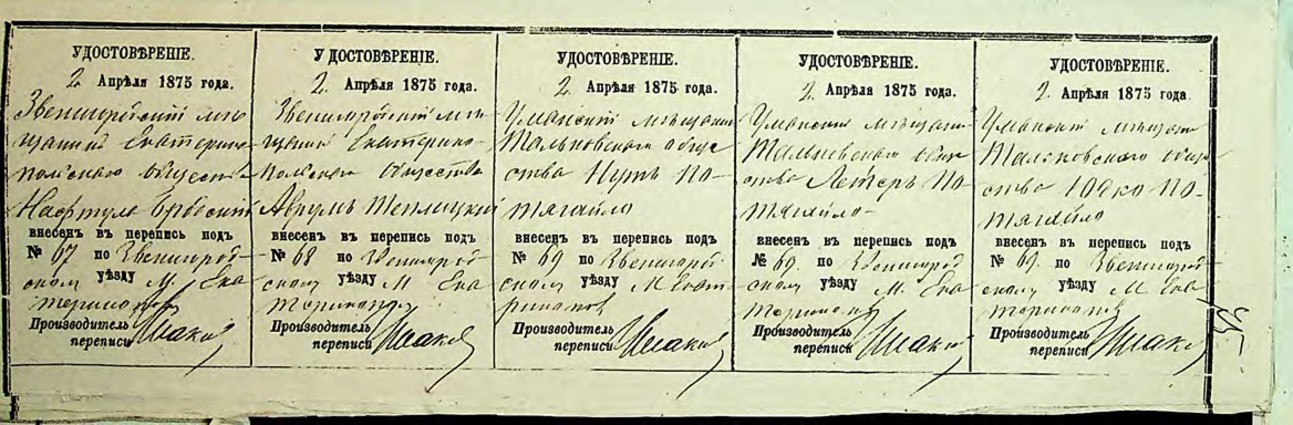 УДОСТОВѢРЕНІЕ.
2 Апрѣля 1875 года.
Звенигородскій мѣ-
щанинъ Екатерино-
польскаго общества
Нафтула
внесенъ въ перепись подъ
№ 67 по Звенигород-
скому уѣзду М. Ека
теринополь
Производитель
переписи
УДОСТОВѢРЕНІЕ.
2. Апрѣля 1875 года.
Звенигородскій мѣ-
щанинъ Екатерино-
польскаго Общества
Аврумъ Теплицкій
внесенъ въ перепись подъ
№ 68 по Звенигород-
скому уѣзду М Ека
Производитель
переписи
УДОСТОВѢРЕНІЕ.
2. Апрѣля 1875 года.
Уманскій мѣщанинъ
Тальновскаго обще
ства Нутъ По-
тягайло
внесенъ въ перепись подъ
№ 69 по Звенигород
скому уѣзду М
Производитель
переписи
УДОСТОВѢРЕНІЕ.
2. Апрѣля 1875 года.
Уманскій мѣщани-
Тальновскаго обще
ства Лейзеръ По-
тягайло-
внесенъ въ перепись подъ
№ 69. по Звенигород
скому уѣзду М. Ека
Производитель
переписи
УДОСТОВѢРЕНІЕ.
2. Апрѣля 1875 года
Уманскій мѣщани
Тальновскаго обще-
ства Юдко По-
тягайло
внесенъ въ перепись подъ
№ 69. по Звенигород-
скому уѣзду М Ека
Производитель
переписи